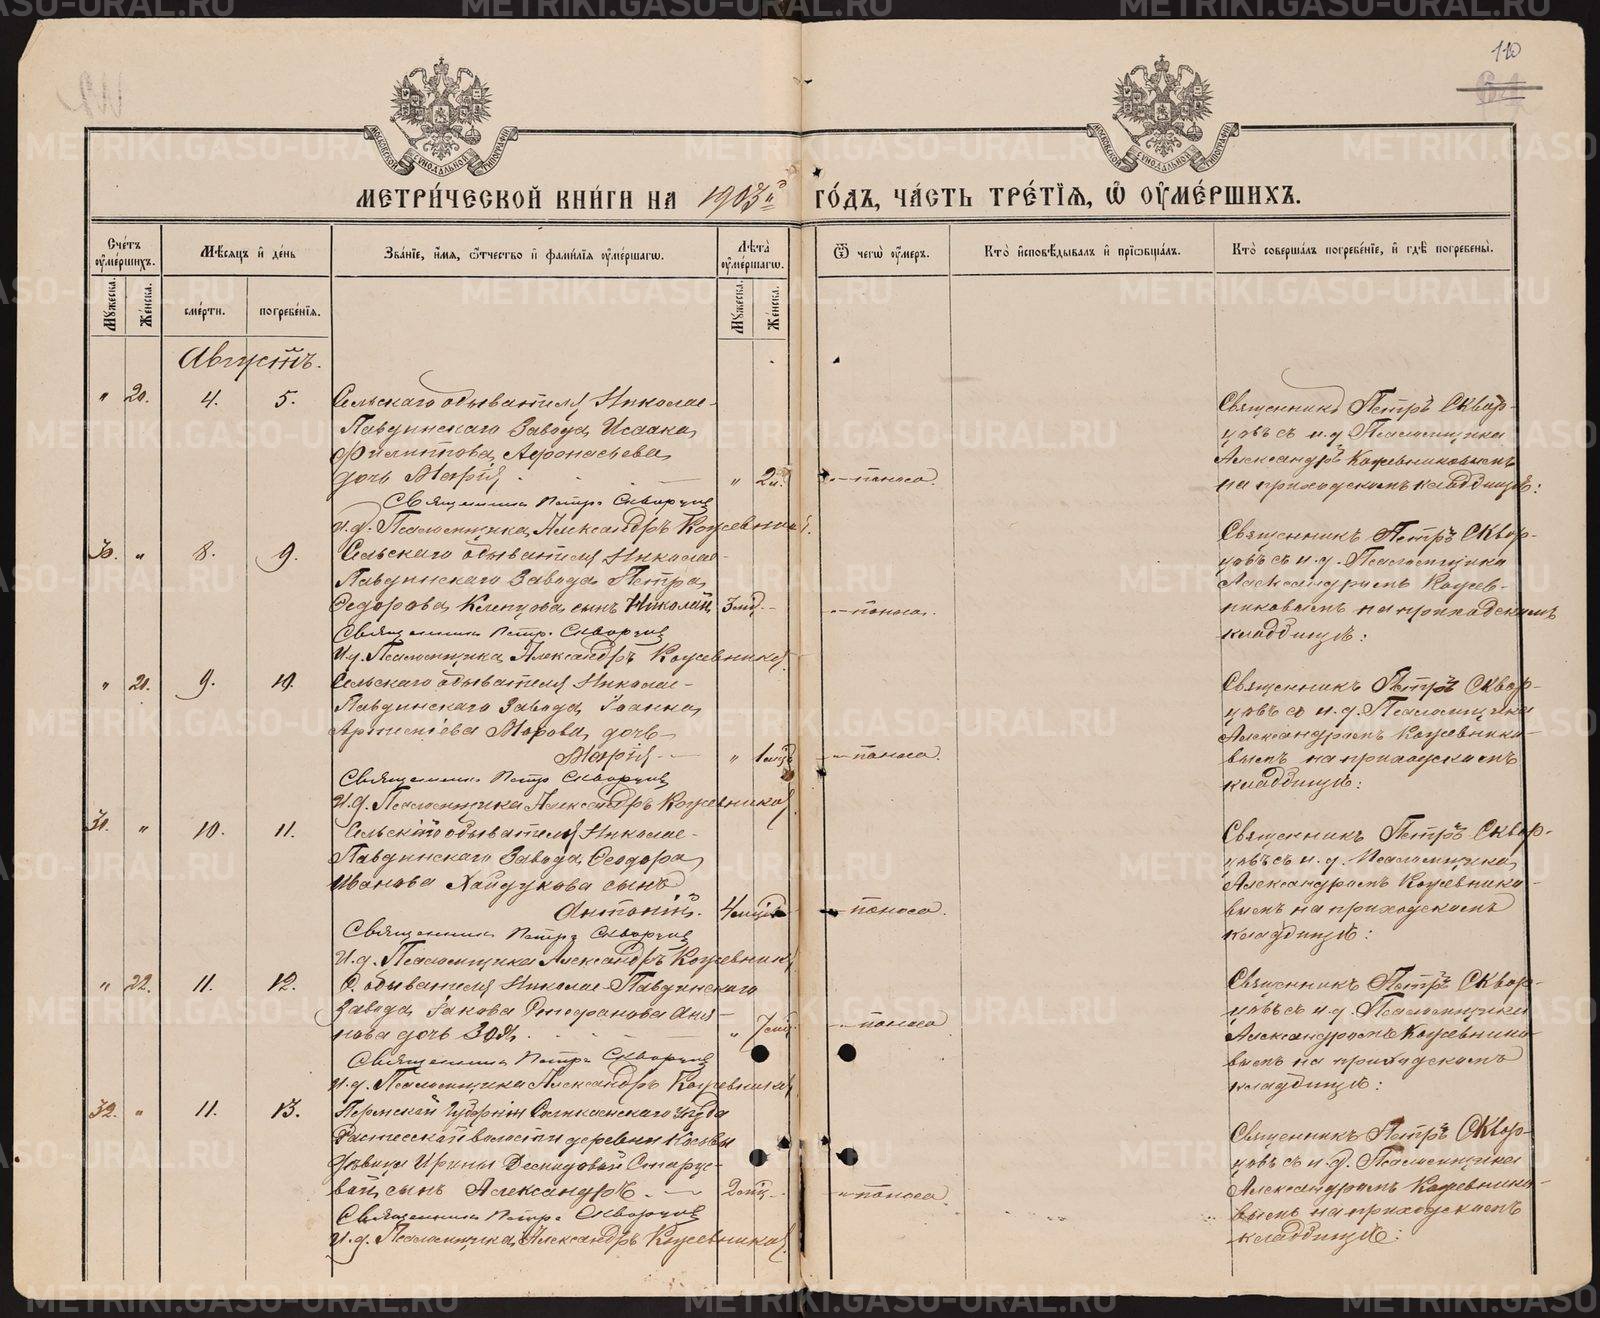 110
МЕТРИ́ЧЕСКОЙ КНИ́ГИ НА 1903й ГО́ДЪ, ЧА́СТЬ ТРЕ́ТІѦ, Ѡ҆ ОУ҆МЕ́РШИХЪ.
Сче́тъ оу҆ме́ршихъ.
Мѣ́сяцъ и҆ де́нь
Зва́нїе, и҆́мѧ, ѻ҆́тчество и҆ фами́лїѧ оу҆ме́ршагѡ.
Лѣ́та оу҆ме́ршагѡ.
Ѿ чегѡ̀ оу҆́меръ.
Кто̀ и҆сповѣ́дывалъ и҆ прїѡбща́лъ.
Кто̀ соверша́лъ погребе́нїе, и҆ гдѣ̀ погребены̀.
Мꙋ́жеска.
Же́нска.
сме́рти.
погребе́нїѧ.
Мꙋ́жеска.
Же́нска.
Августъ.
" 20. 4. 5. Сельскаго обывателя Николае-
Павдинскаго Завода Исаака
Филиппова Афонасьева
дочь Марія " 2 — поноса.
Священникъ Петръ Скворцов
И.д. Псаломщика Александръ Кожевников.
Священникъ Петръ Сквор-
цовъ съ и.д. Псаломщика
Александръ Кожевниковымъ
на приходскомъ кладбищѣ:
30. " 8. 9. Сельскаго обывателя Николае-
Павдинскаго Завода Петра
Ѳедорова Клепцова сынъ Николай 3 мѣс. — поноса.
Священникъ Петръ Скворцов
И.д. Псаломщика Александръ Кожевников.
Священникъ Петръ Сквор-
цовъ съ и.д. Псаломщика
Александромъ Кожев-
никовымъ на приходскомъ
кладбищѣ:
" 20. 9. 10. Сельскаго обывателя Николае-
Павдинскаго Завода Іоанна
Артеміева Морова дочь
Марія " 1 мѣс — поноса.
Священникъ Петръ Скворцов
И.д. Псаломщика Александръ Кожевников.
Священникъ Петръ Сквор-
цовъ съ и.д. Псаломщика
Александромъ Кожевнико-
вымъ на приходскомъ
кладбищѣ:
31. " 10. 11. Сельскаго обывателя Николае-
Павдинскаго Завода Ѳеодора
Иванова Хайдукова сынъ
Антоній. 4 мѣс — поноса.
Священникъ Петръ Скворцов
И.д. Псаломщика Александръ Кожевников
Священникъ Петръ Сквор-
цовъ съ и.д. Псаломщика
Александромъ Кожевнико-
вымъ на приходскомъ
кладбищѣ:
" 22. 11. 12. С. обывателя Николае-Павдинскаго
Завода Іакова Стефанова Аня-
нова дочь Зоя. " 7 мѣс — поноса
Священникъ Петръ Скворцов
И.д. Псаломщика Александръ Кожевников
Священникъ Петръ Сквор-
цовъ съ и.д. Псаломщика
Александромъ Кожевнико-
вымъ на приходскомъ
кладбищѣ:
32. " 11. 13. Пермской Губерніи Соликамскаго уѣзда
Растесской волости деревни Косьвы
дѣвицы Ирины Демидовой Старце-
вой сынъ Александръ. 2 мѣс. — поноса.
Священникъ Петръ Скворцов
И.д. Псаломщика Александръ Кожевников.
Священникъ Петръ Сквор-
цовъ съ и.д. Псаломщика
Александромъ Кожевнико-
вымъ на приходскомъ
кладбищѣ: